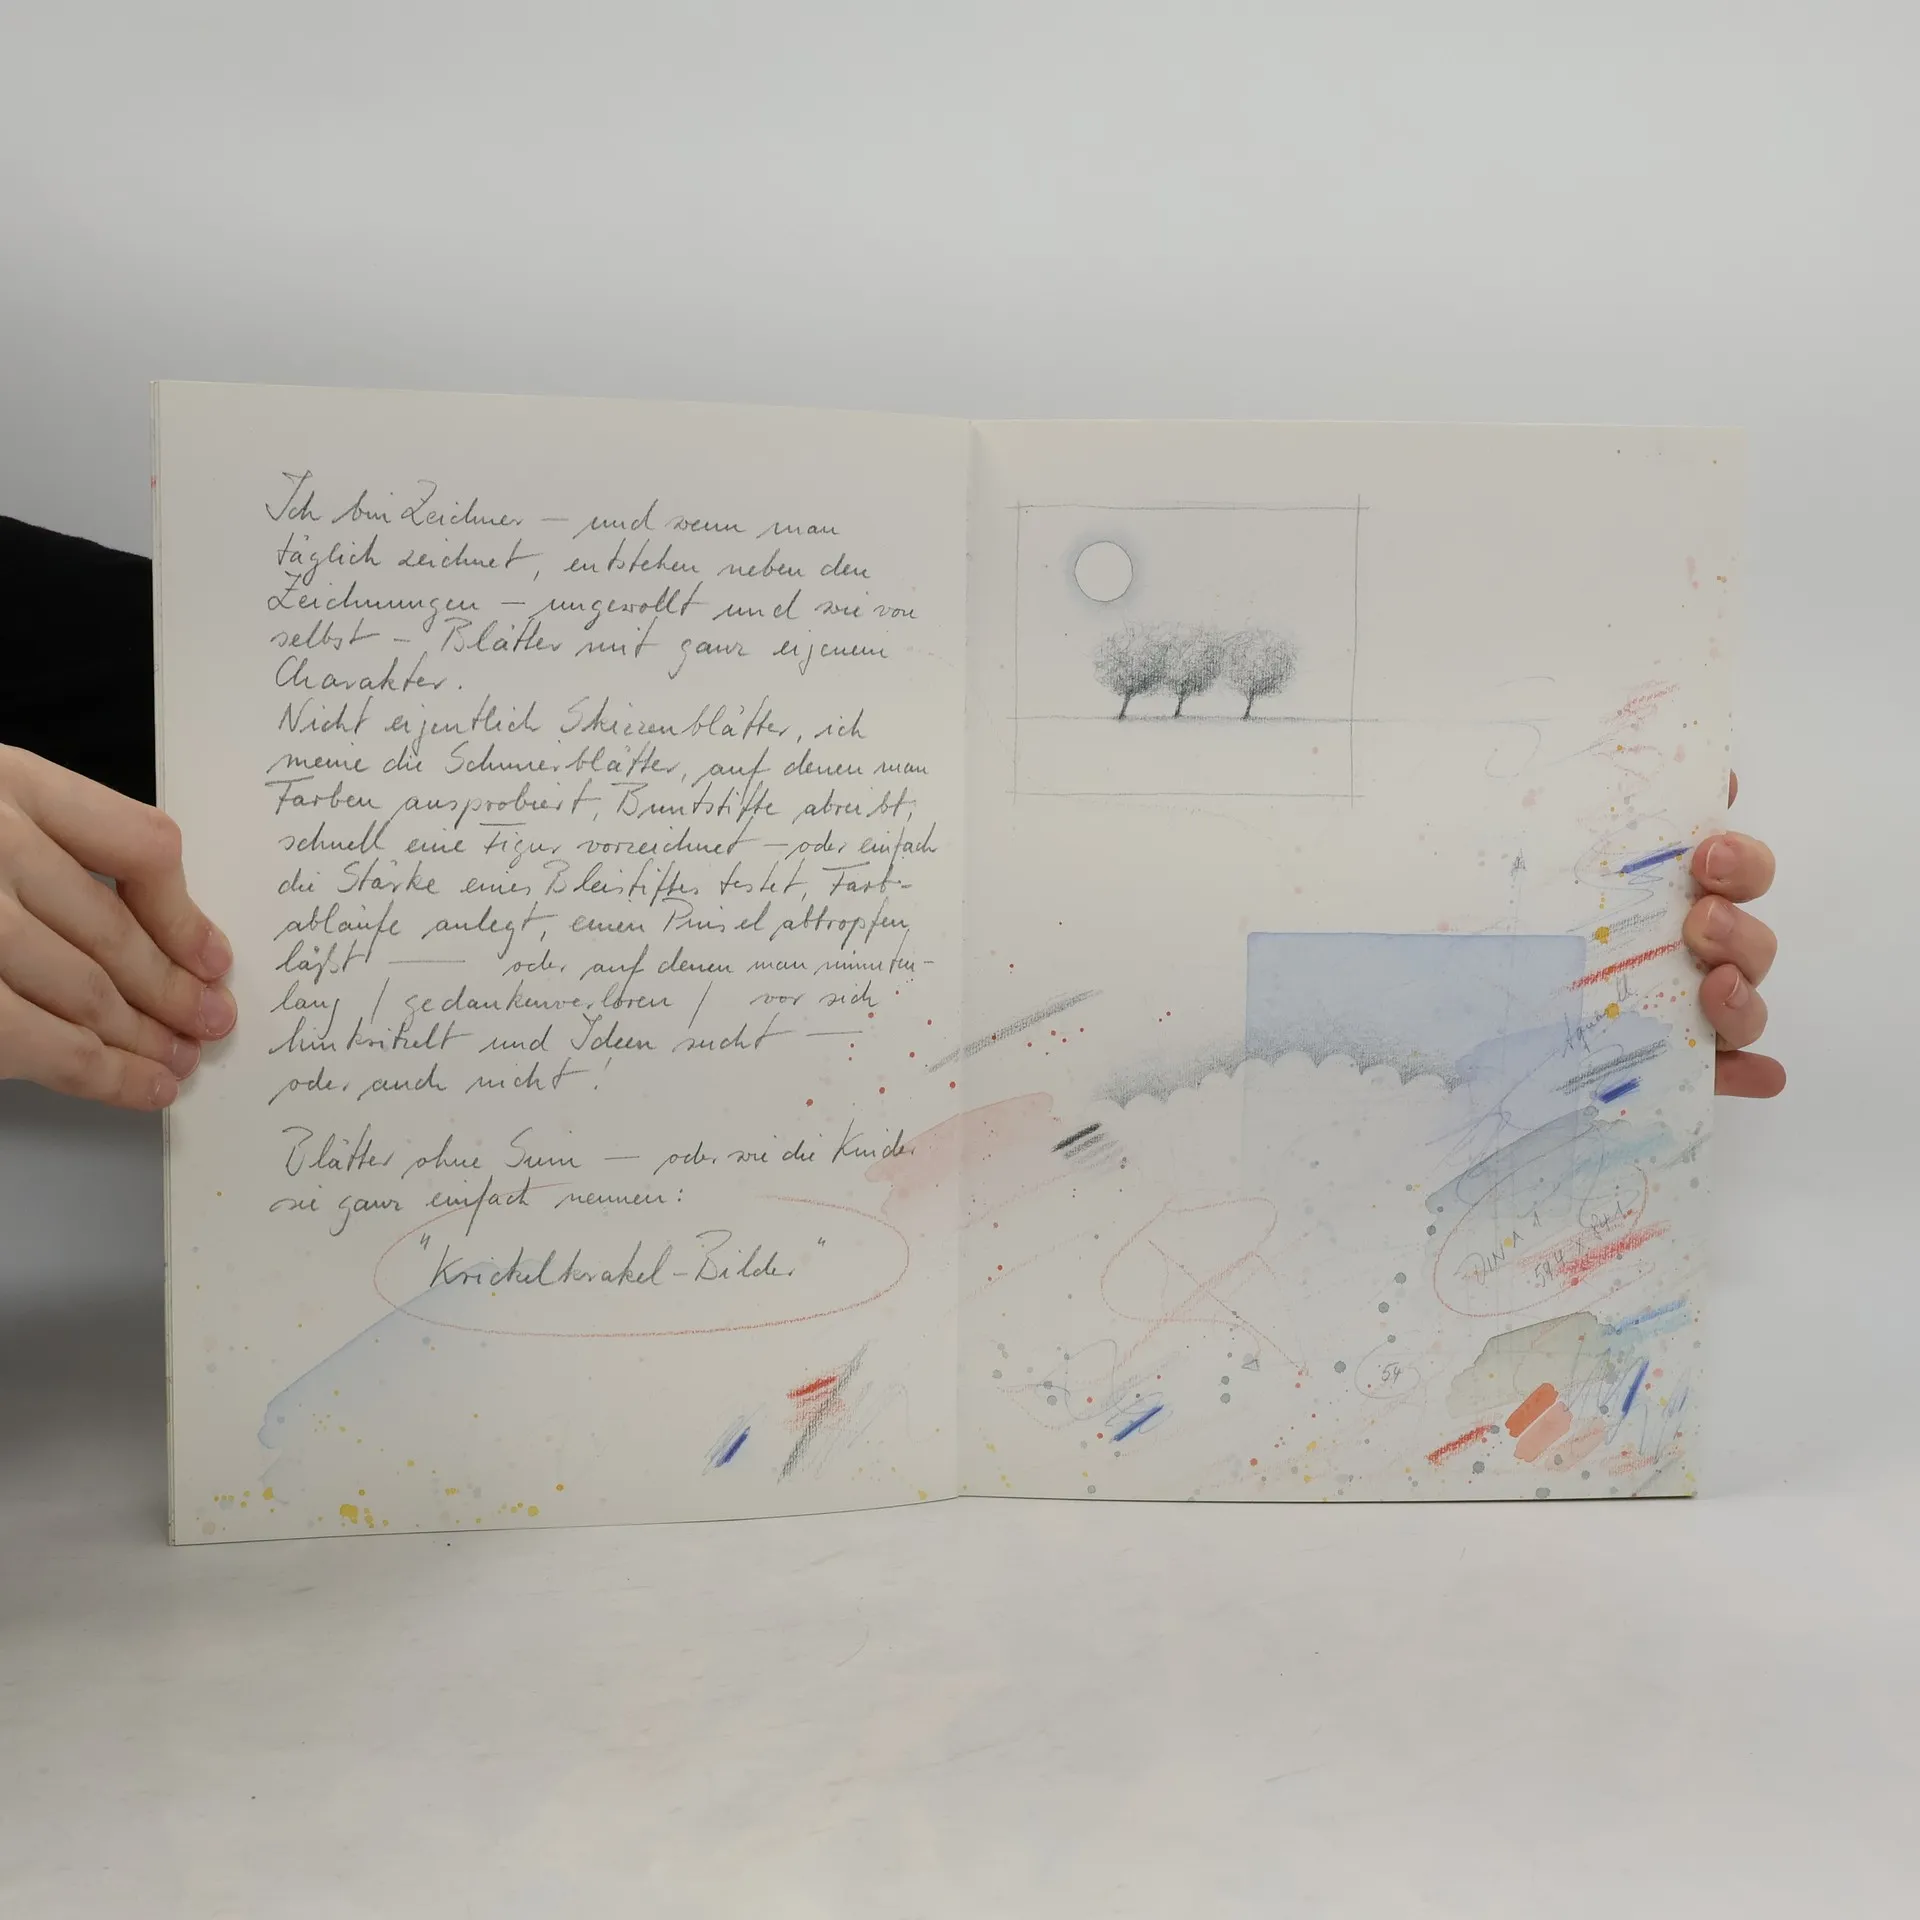 Ich bin Zeichner – und wenn man
täglich zeichnet, entstehen neben den
Zeichnungen – ungewollt und wie von
selbst – Blätter mit ganz eigenem
Charakter.
Nicht eigentlich Skizzenblätter, ich
meine die Schmierblätter, auf denen man
Farben ausprobiert, Buntstifte abreibt,
schnell eine Figur vorzeichnet – oder einfach
die Stärke eines Bleistiftes testet, Farb-
abläufe anlegt, einen Pinsel abtropfen
läßt — oder auf denen man minuten-
lang / gedankenverloren / vor sich
hinkritzelt und Ideen sucht —
oder auch nicht!
Blätter ohne Sinn — oder wie die Kinder
sie ganz einfach nennen:
"Krickelkrakel-Bilder"
DIN A 1
594 x 841
54